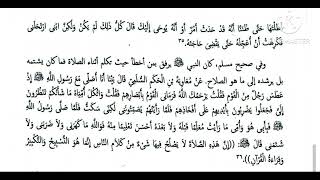 أطلتها حتى ظننا أنه قد حدث أمر أو أنه يوحى إليك قال كُلُّ ذلك لَمْ يَكُنْ وَلَكِنَّ ابْنِي ارْتَحَلَنِي
فَكَرِهْتُ أَنْ أُعَجِّلَهُ حَتَّى يَقْضِيَ حَاجَتَهُ. ٣٥
وفي صحيح مسلم، كان النبي ﷺ يرفق بمن أخطأ حيث تكلم أثناء الصلاة فما كان يشتمه
بل يرشده إلى ما هو الصلاح. عَنْ مُعَاوِيَةَ بْنِ الْحَكَمِ السُّلَمِيِّ قَالَ بَيْنَا أَنَا أُصَلِّي مَعَ رَسُولِ اللَّهِ ﷺ إِذْ
عَطَسَ رَجُلٌ مِنَ الْقَوْمِ فَقُلْتُ يَرْحَمُكَ اللَّهُ فَرَمَانِي الْقَوْمُ بِأَبْصَارِهِمْ فَقُلْتُ وَاثُكْلَ أُمِّيَاهُ مَا شَأْنُكُمْ تَنْظُرُونَ
إِلَيَّ فَجَعَلُوا يَضْرِبُونَ بِأَيْدِيهِمْ عَلَى أَفْخَاذِهِمْ فَلَمَّا رَأَيْتُهُمْ يُصَمِّتُونَنِي لَكِنِّي سَكَتُّ فَلَمَّا صَلَّى رَسُولُ اللَّهِ
ﷺ فَبِأَبِي هُوَ وَأُمِّي مَا رَأَيْتُ مُعَلِّمًا قَبْلَهُ وَلاَ بَعْدَهُ أَحْسَنَ تَعْلِيمًا مِنْهُ فَوَاللَّهِ مَا كَهَرَنِي وَلاَ ضَرَبَنِي وَلاَ
شَتَمَنِي قَالَ ((إِنَّ هَذِهِ الصَّلاَةَ لاَ يَصْلُحُ فِيهَا شَيْءٌ مِنْ كَلاَمِ النَّاسِ إِنَّمَا هُوَ التَّسْبِيحُ وَالتَّكْبِيرُ
وَقِرَاءَةُ الْقُرْآنِ)). ٣٦